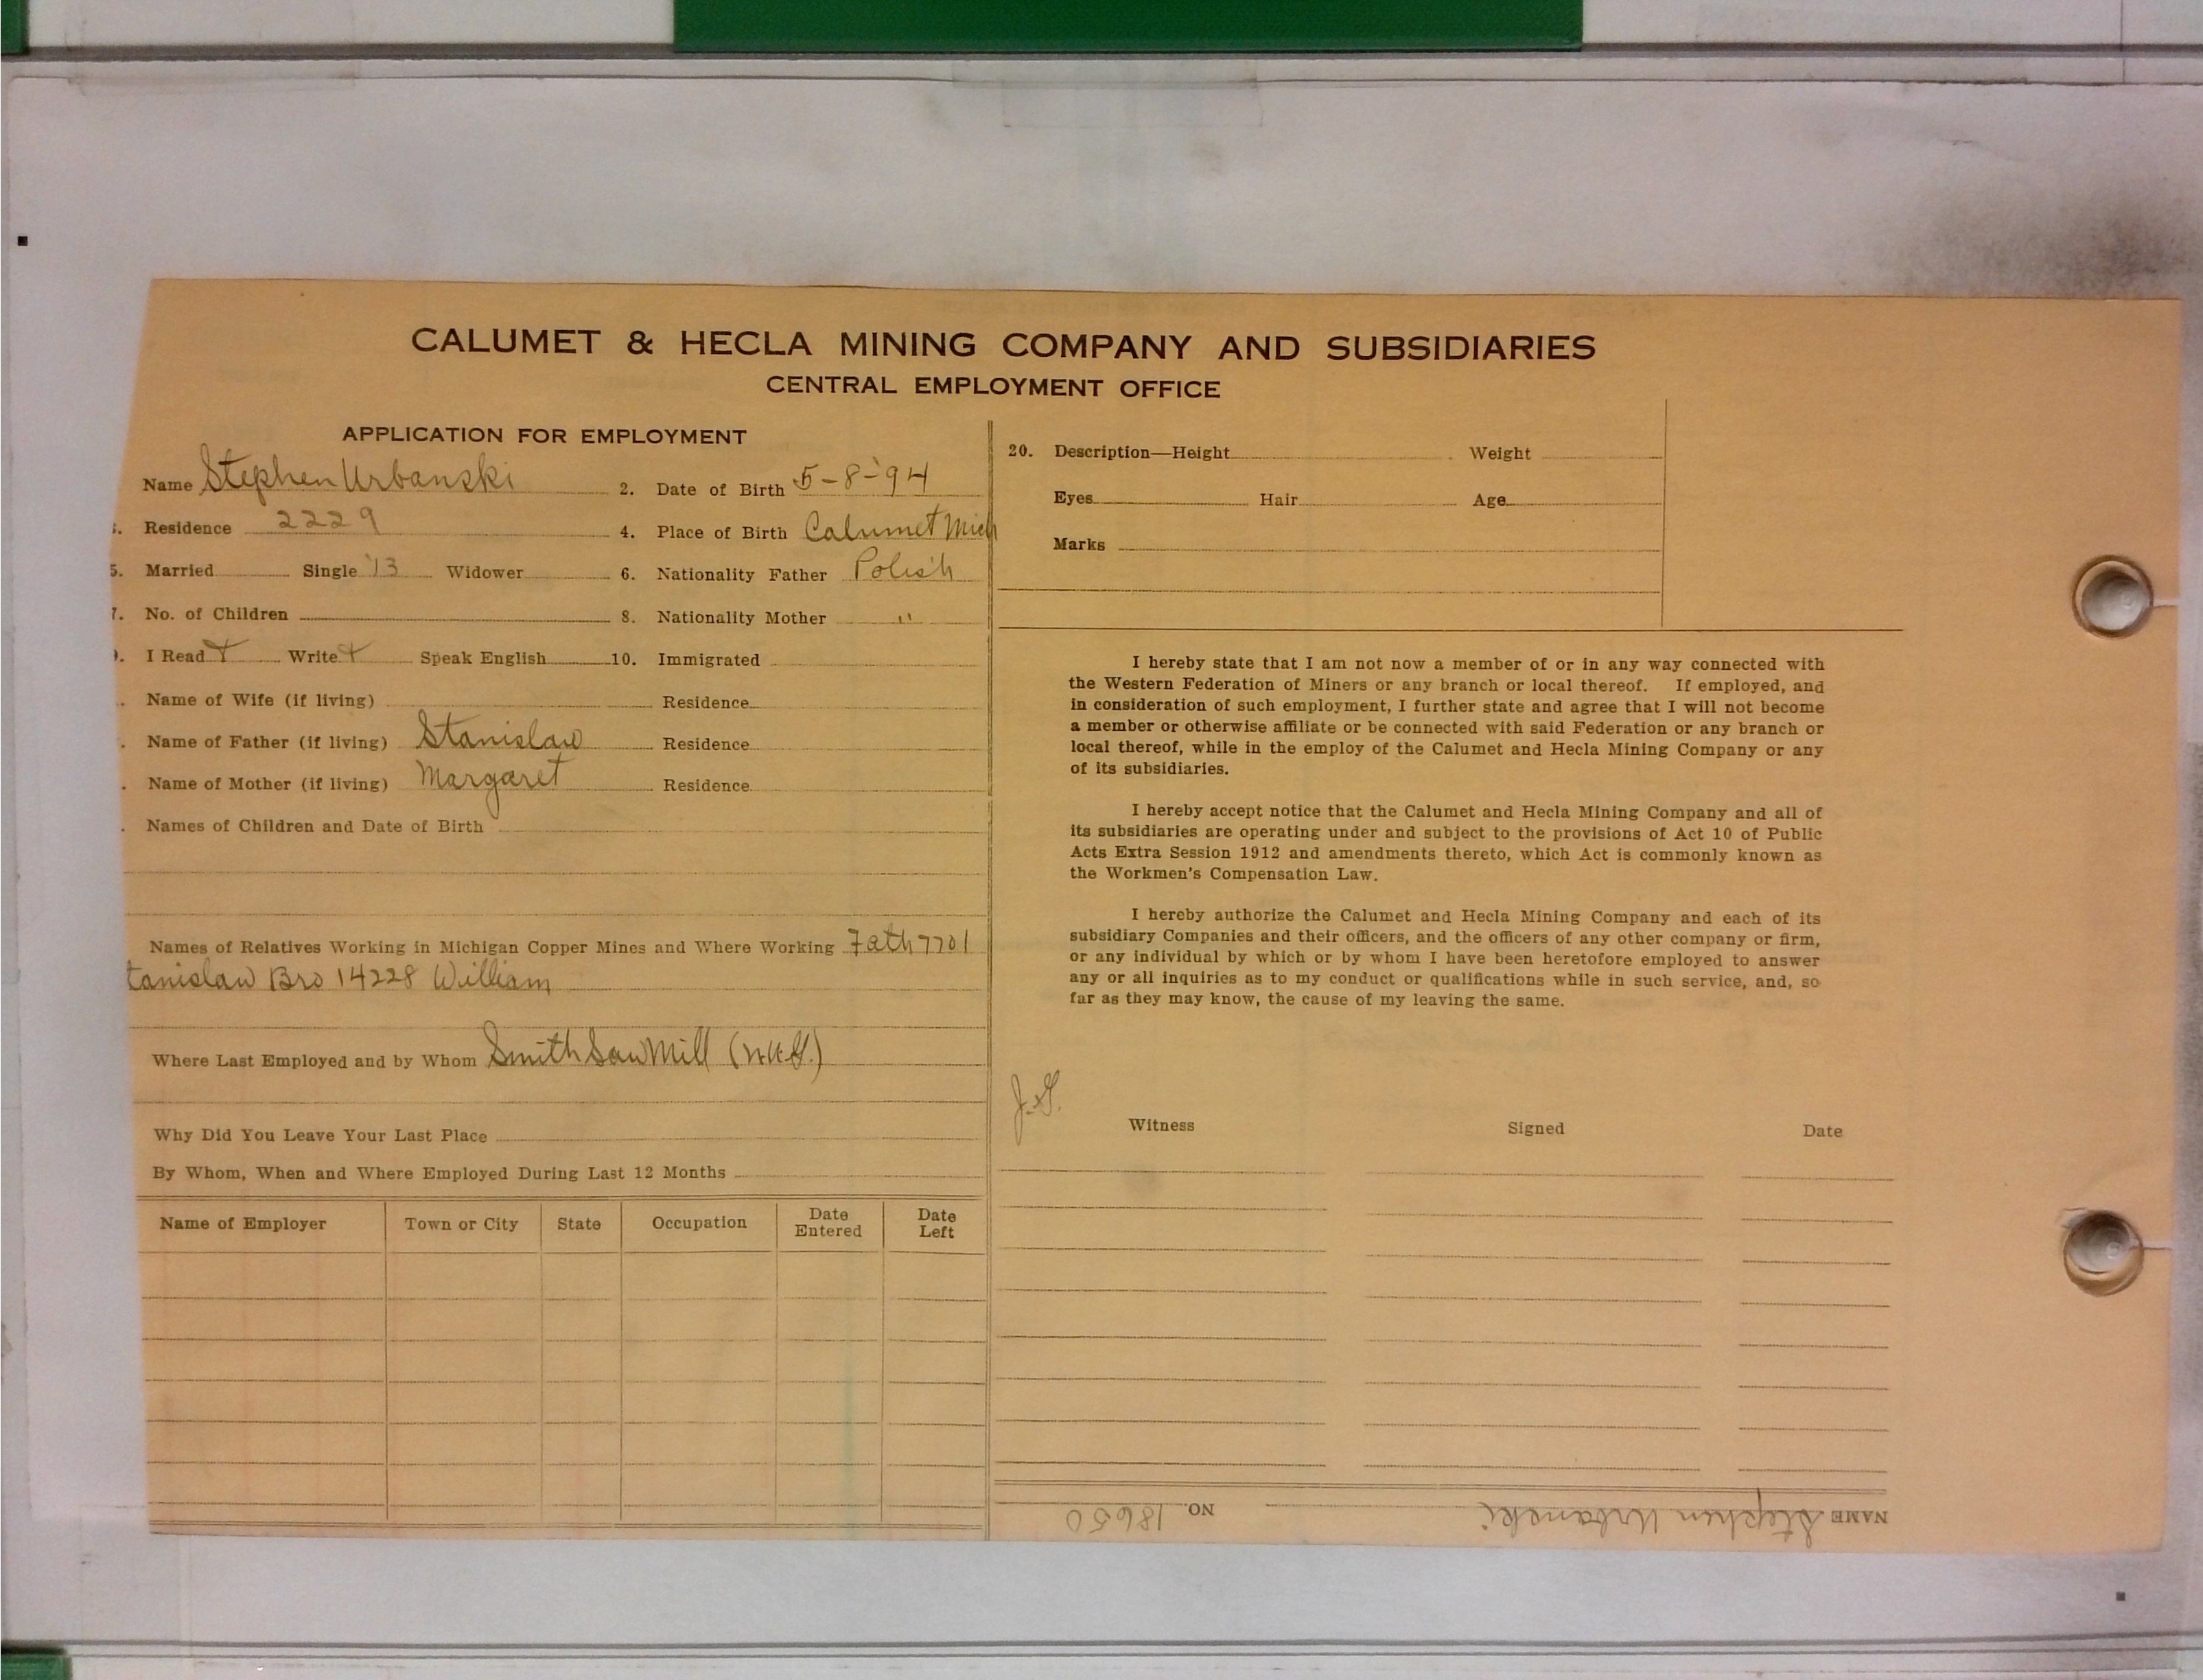 CALUMET & HECLA MINING COMPANY AND SUBSIDIARIES
CENTRAL EMPLOYMENT OFFICE
APPLICATION FOR EMPLOYMENT
Name Stephen Urbanski 2. Date of Birth 5-8-'94
Residence 2229 4. Place of Birth Calumet Mich
5. Married Single '13 Widower 6. Nationality Father Polish
7. No. of Children 8. Nationality Mother "
I Read Write Speak English 10. Immigrated
Name of Wife (if living) Residence
Name of Father (if living) Stanislaw Residence
Name of Mother (if living) Margaret Residence
Names of Children and Date of Birth
Names of Relatives Working in Michigan Copper Mines and Where Working Fath 7701
tanislaw Bro 14228 William
Where Last Employed and by Whom Smith Saw Mill
Why Did You Leave Your Last Place
By Whom, When and Where Employed During Last 12 Months
Name of Employer Town or City State Occupation Date Entered Date Left
20. Description—Height Weight
Eyes Hair Age
Marks
I hereby state that I am not now a member of or in any way connected with
the Western Federation of Miners or any branch or local thereof. If employed, and
in consideration of such employment, I further state and agree that I will not become
a member or otherwise affiliate or be connected with said Federation or any branch or
local thereof, while in the employ of the Calumet and Hecla Mining Company or any
of its subsidiaries.
I hereby accept notice that the Calumet and Hecla Mining Company and all of
its subsidiaries are operating under and subject to the provisions of Act 10 of Public
Acts Extra Session 1912 and amendments thereto, which Act is commonly known as
the Workmen's Compensation Law.
I hereby authorize the Calumet and Hecla Mining Company and each of its
subsidiary Companies and their officers, and the officers of any other company or firm,
or any individual by which or by whom I have been heretofore employed to answer
any or all inquiries as to my conduct or qualifications while in such service, and, so
far as they may know, the cause of my leaving the same.
Witness Signed Date
NAME Stephen Urbanski NO. 18650